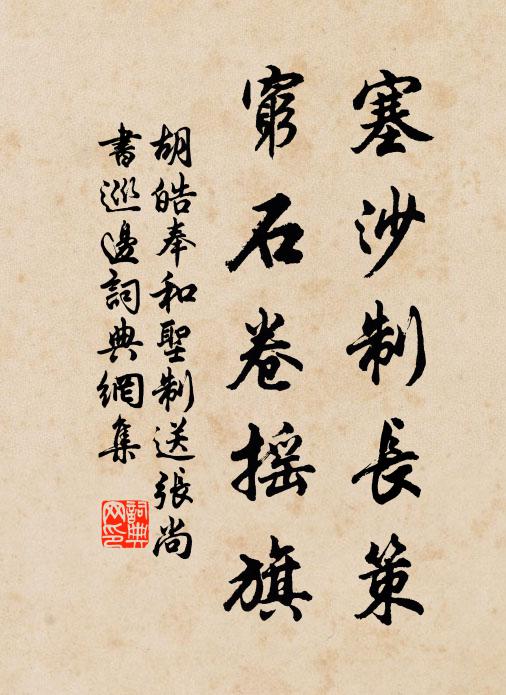 塞沙制長策
窮石卷摇旗
胡皓奉和聖制送張尚
書巡邊詞典網集
詞典
网印